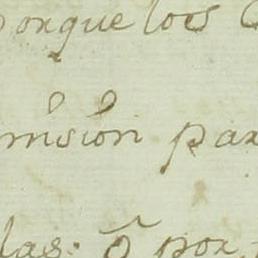 porque los
mision par
las: o por